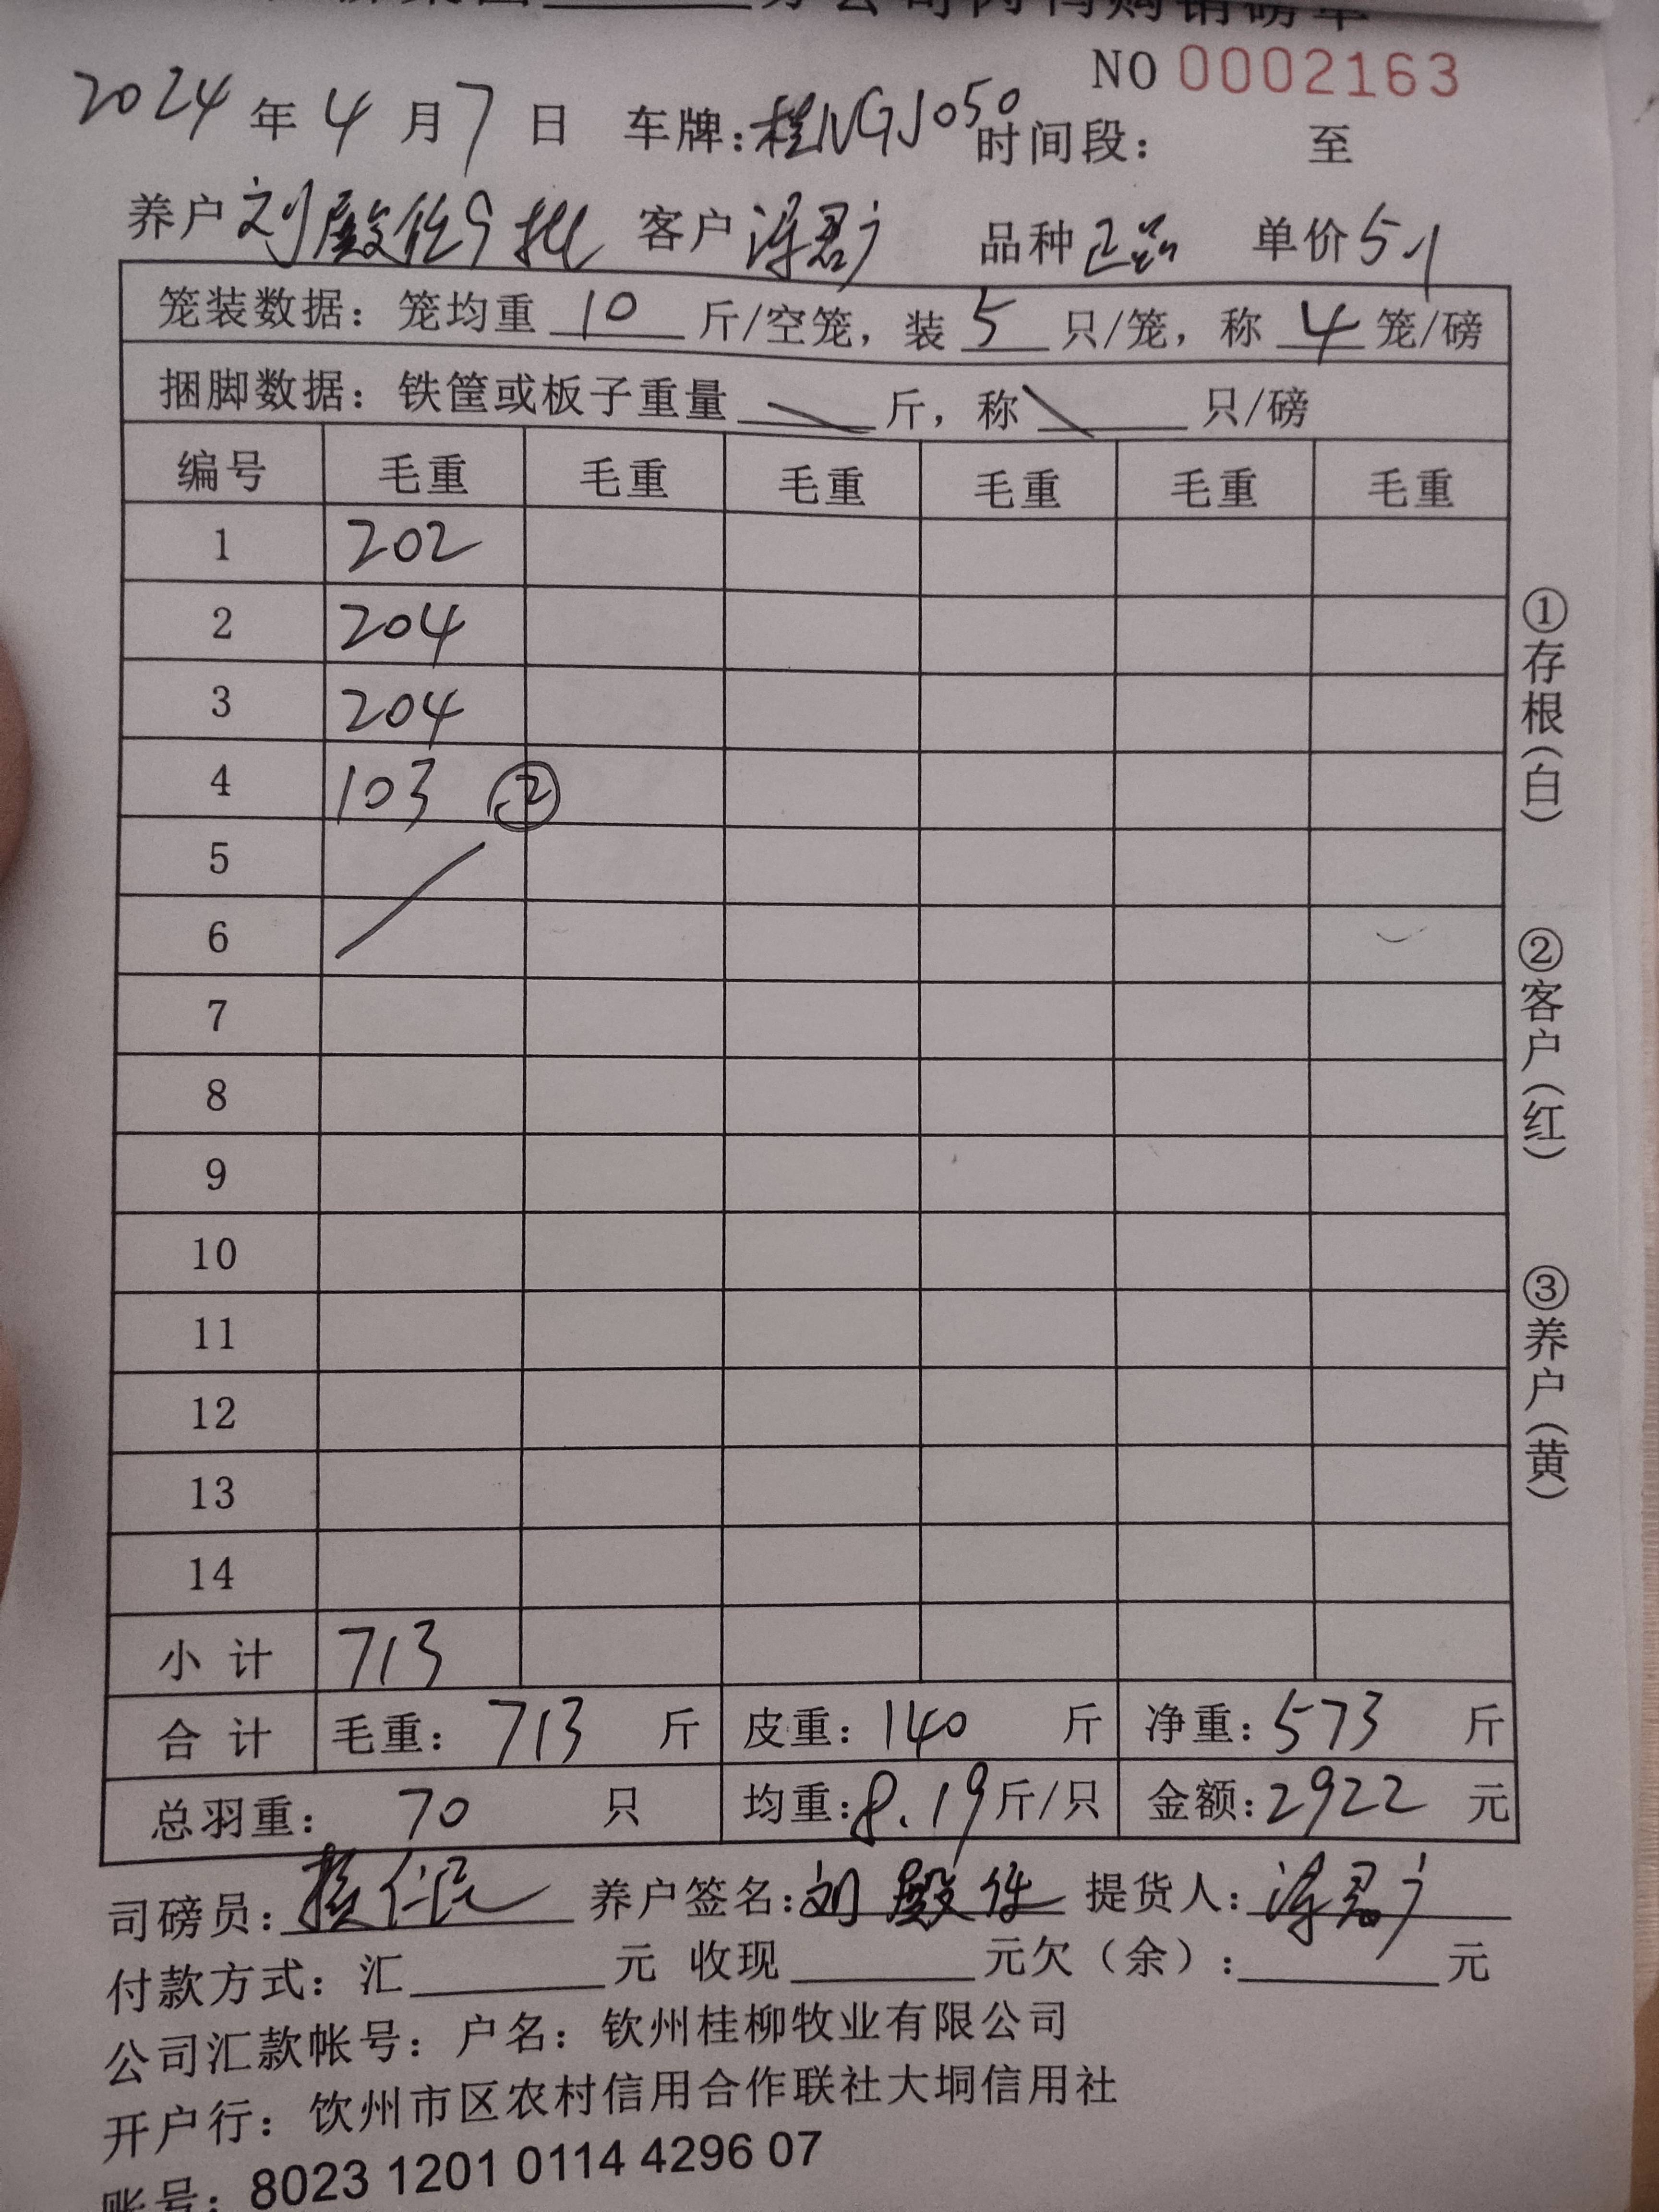 分公司肉鸭购销磅单
NO 0002163
2024 年 4 月 7 日 车牌:桂NGJ050 时间段: 至
养户 刘殿伦9批 客户 泽君广 品种 正品 单价 5.1
笼装数据:笼均重 10 斤/空笼,装 5 只/笼,称 4 笼/磅
捆脚数据:铁筐或板子重量 斤,称 只/磅
编号 毛重 毛重 毛重 毛重 毛重 毛重
1 202
2 204
3 204
4 103 ②
5
6
7
8
9
10
11
12
13
14
小计 713
合计 毛重: 713 斤 皮重: 140 斤 净重: 573 斤
总羽重: 70 只 均重: 8.19 斤/只 金额: 2922 元
司磅员: 养户签名: 刘殿 提货人:
付款方式:汇 元 收现 元欠(余): 元
公司汇款帐号:户名:钦州桂柳牧业有限公司
开户行:饮州市区农村信用合作联社大垌信用社
账号:8023 1201 0114 4296 07
①存根(白)
②客户(红)
③养户(黄)